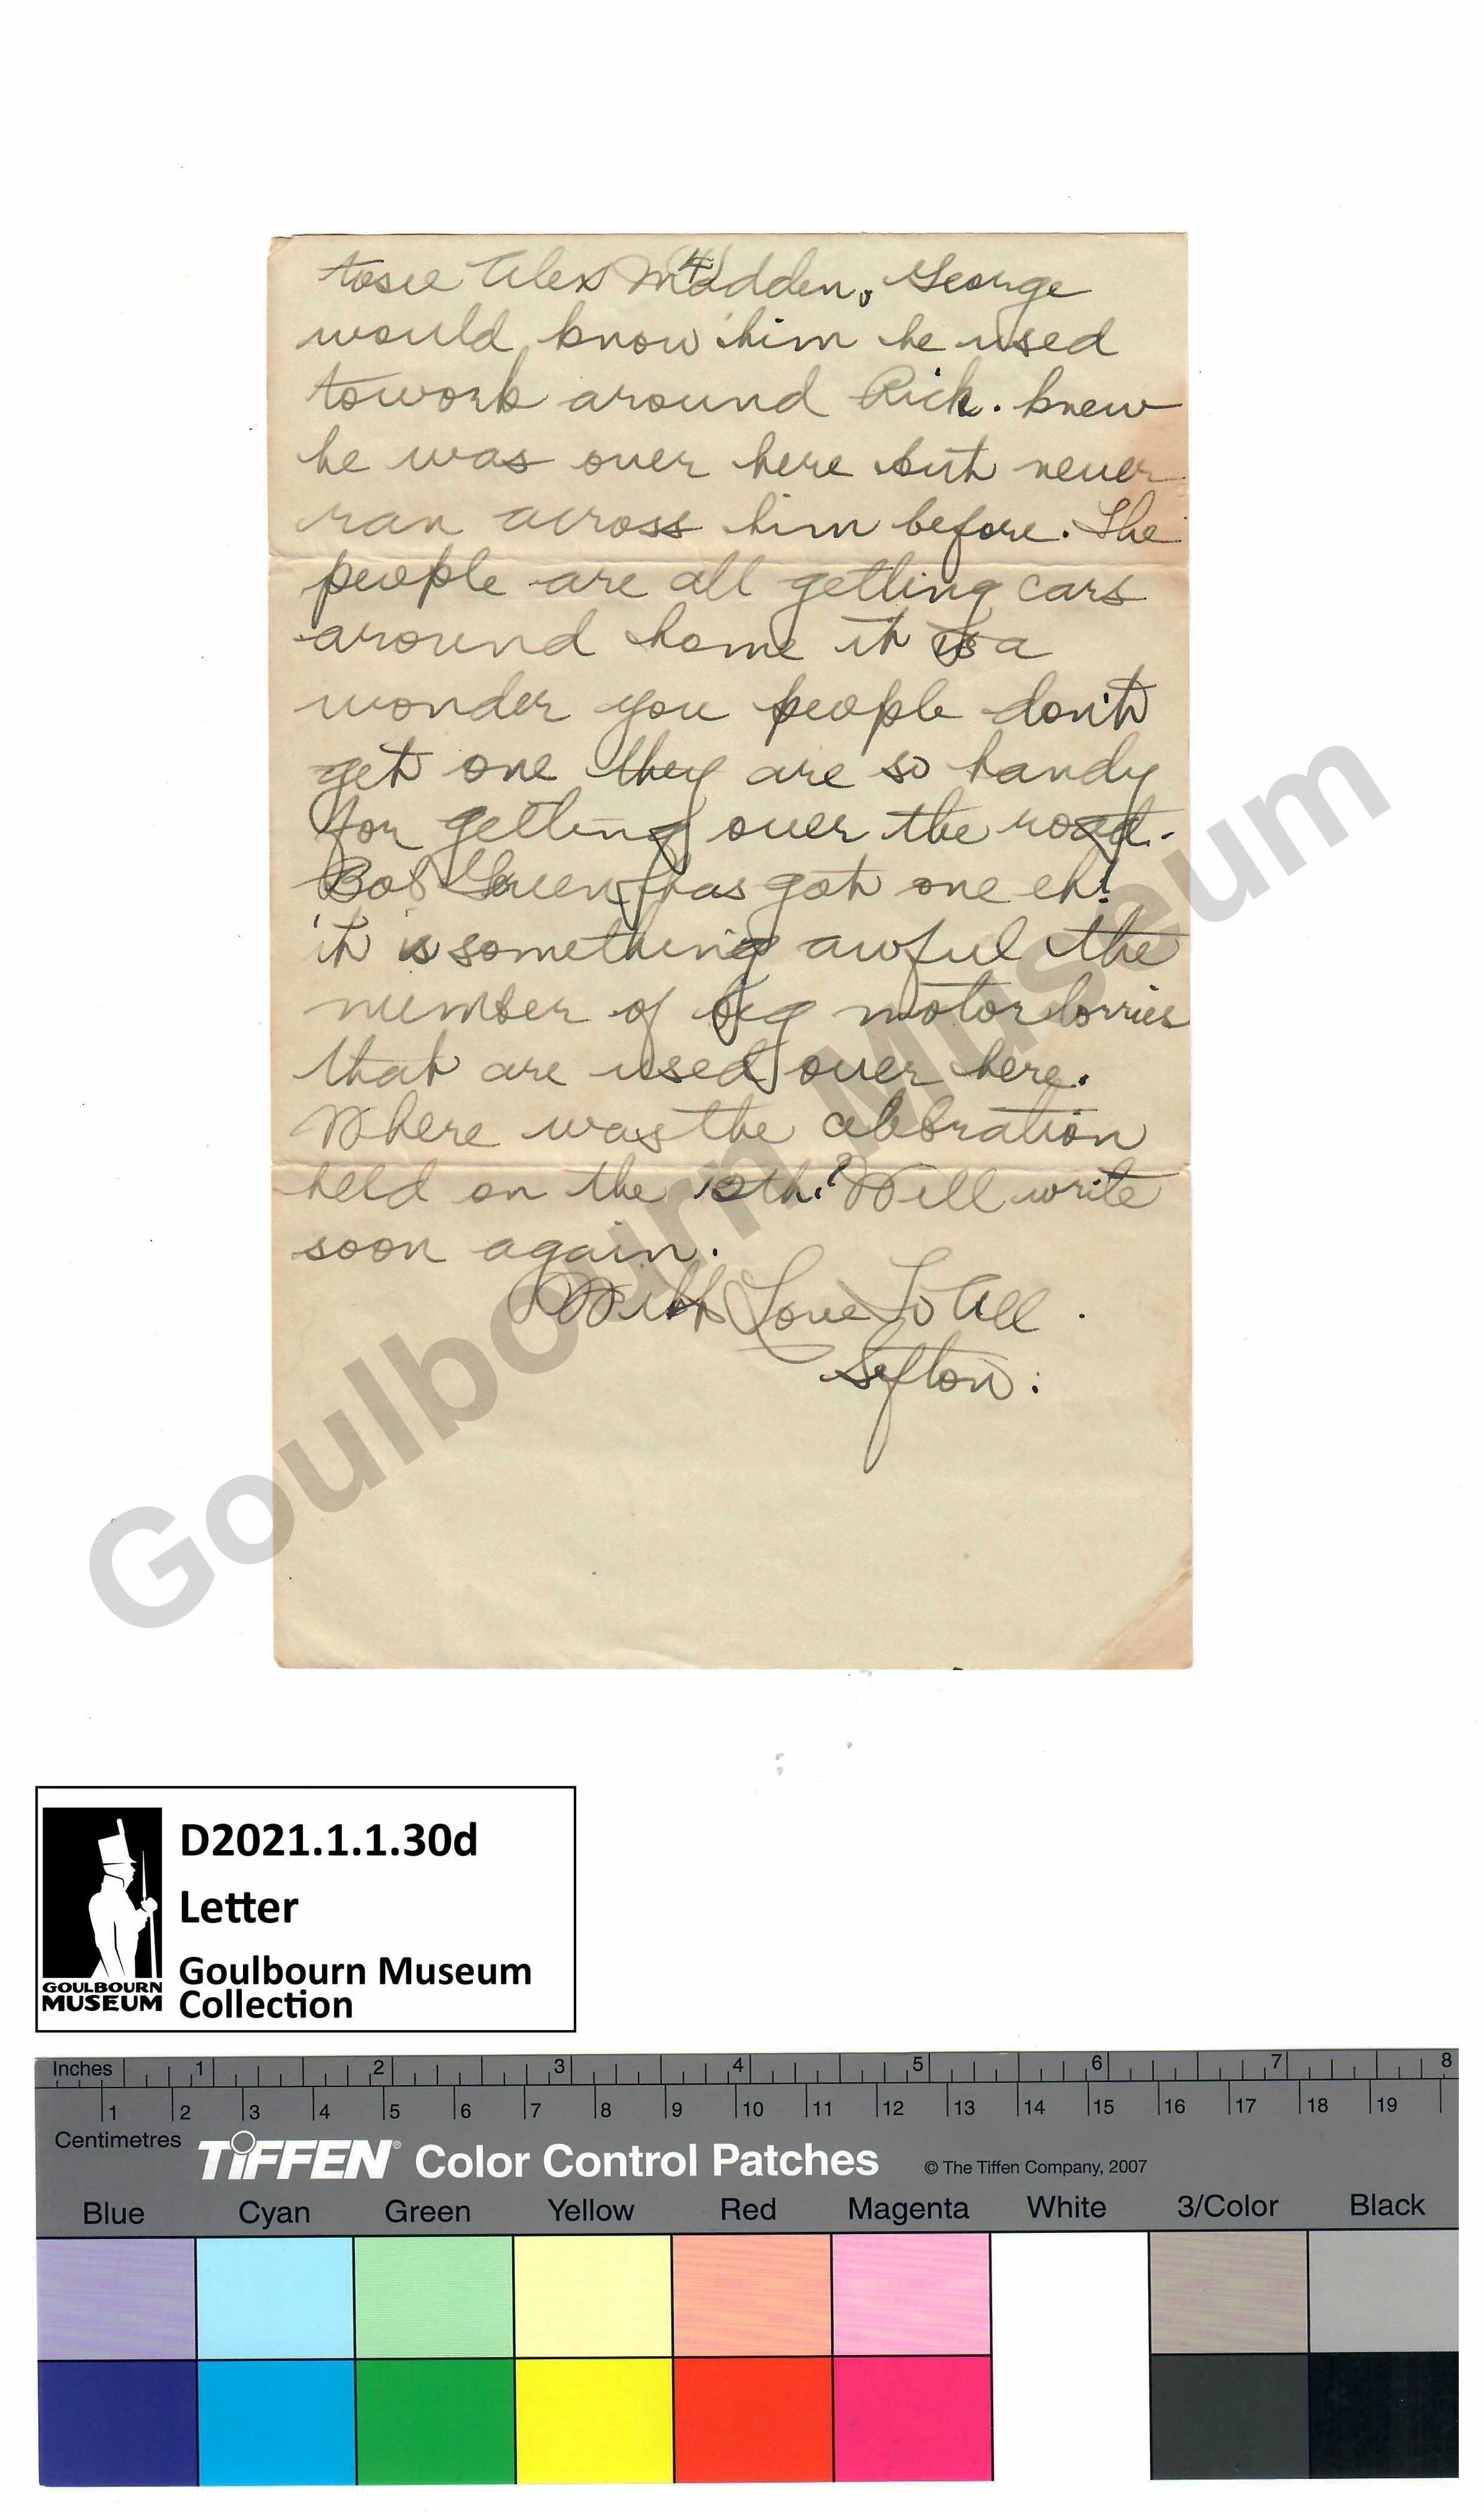 (4)
to see Alex Madden, George
would know him he used
to work around Rich. knew
he was over here but never
ran across him before. The
people are all getting cars
around home it is a
wonder you people don't
get one they are so handy
for getting over the road.
Bob Green has got one eh!
it is something awful the
number of big motor lorries
that are used over here.
Where was the celebration
held on the 12th? Will write
soon again.
With Love To All.
Sefton.
Goulbourn Museum
D2021.1.1.30d
Letter
Goulbourn Museum
Collection
GOULBOURN
MUSEUM
Inches 1 2 3 4 5 6 7 8
1 2 3 4 5 6 7 8 9 10 11 12 13 14 15 16 17 18 19
Centimetres
TIFFEN® Color Control Patches © The Tiffen Company, 2007
Blue Cyan Green Yellow Red Magenta White 3/Color Black